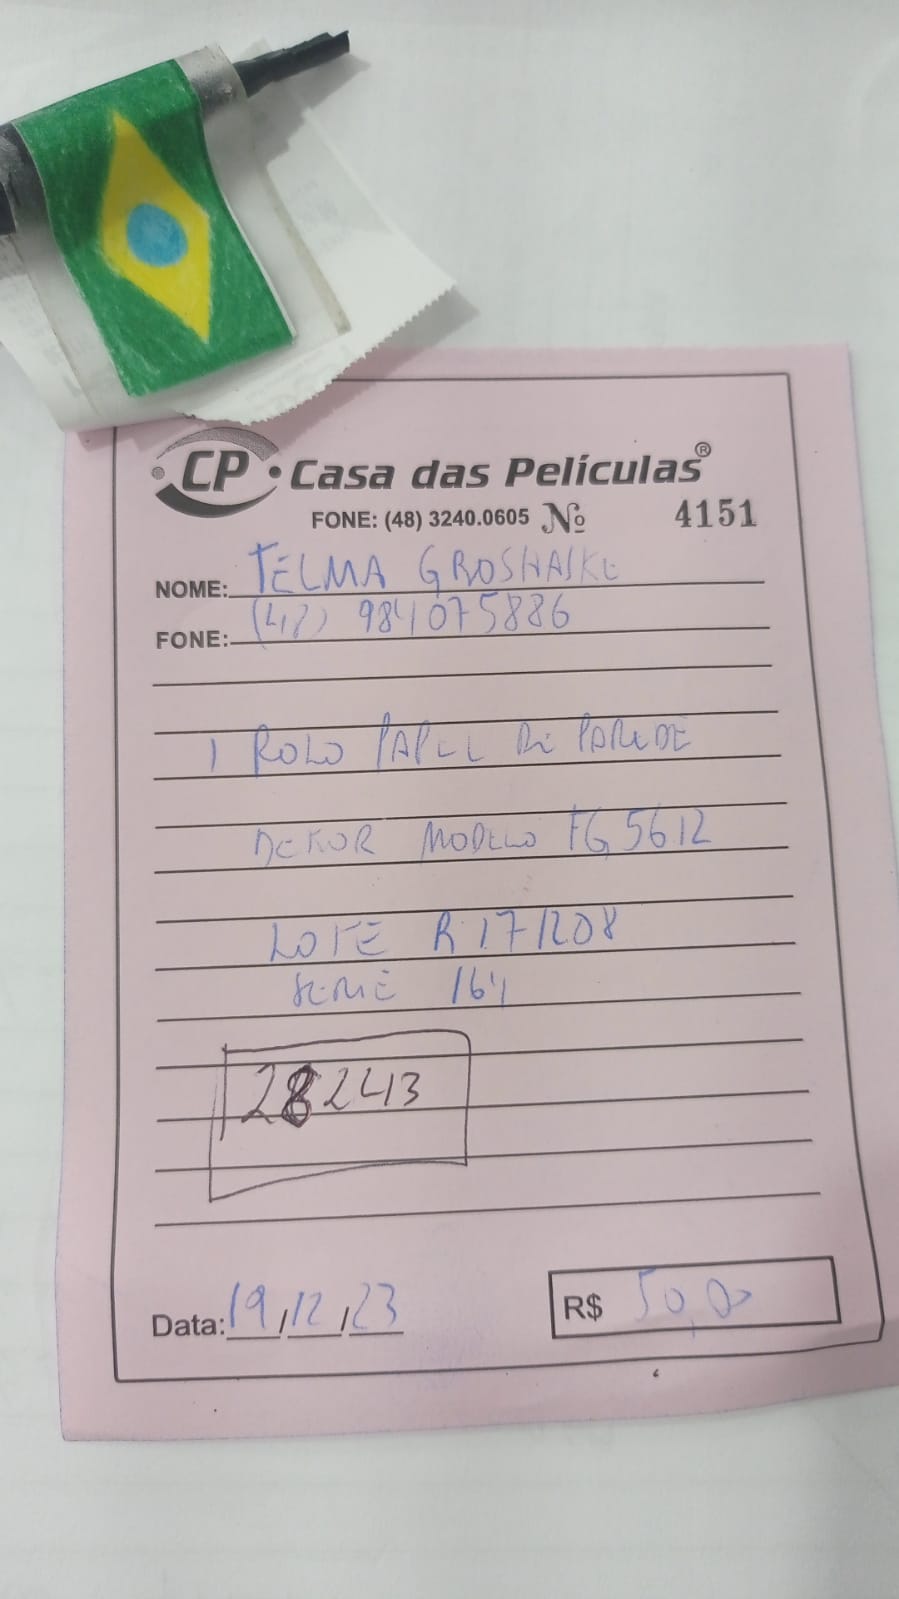 CP Casa das Películas®
FONE: (48) 3240.0605 Nº 4151
NOME: TELMA GROSHAIKE
FONE: (48) 984075886
1 ROLO PAPEL DE PAREDE
DEKOR MODELO FG5612
LOTE R171208
SERIE 164
28243
Data: 19/12/23
R$ 50,00